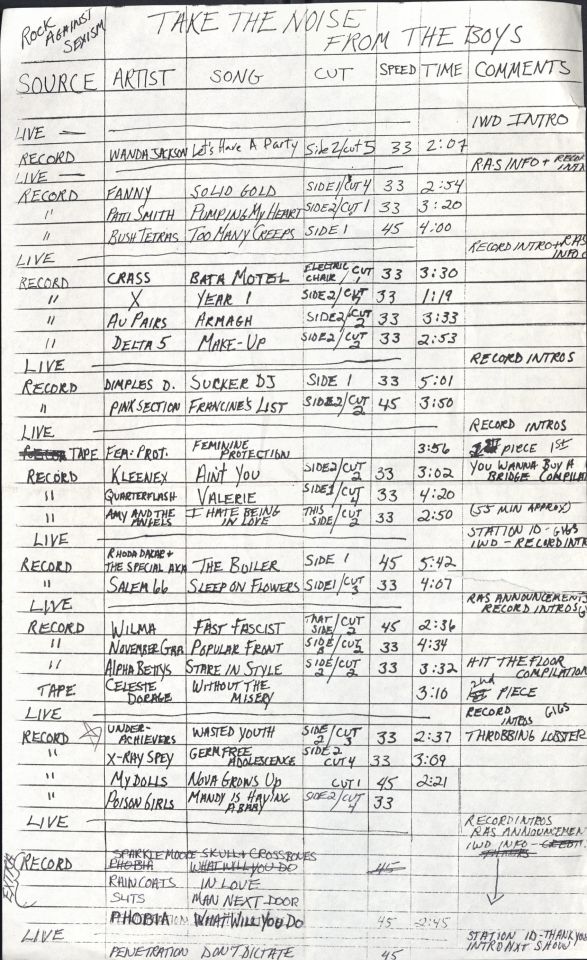 ROCK AGAINST SEXISM
TAKE THE NOISE
FROM THE BOYS
SOURCE ARTIST SONG CUT SPEED TIME COMMENTS
LIVE — IWD INTRO
RECORD WANDA JACKSON Let's Have A Party Side 2/cut 5 33 2:07
LIVE — RAS INFO + RECORD
RECORD FANNY SOLID GOLD SIDE 1/CUT 4 33 2:54
" PATTI SMITH PUMPING MY HEART SIDE 2/CUT 1 33 3:20
" BUSH TETRAS TOO MANY CREEPS SIDE 1 45 4:00
LIVE RECORD INTRO + RAS INFO
RECORD CRASS BATA MOTEL ELECTRIC CHAIR/CUT 1 33 3:30
" X YEAR 1 SIDE 2/CUT 33 1:19
" AU PAIRS ARMAGH SIDE 2/CUT 2 33 3:33
" DELTA 5 MAKE-UP SIDE 2/CUT 2 33 2:53
LIVE RECORD INTROS
RECORD DIMPLES D. SUCKER DJ SIDE 1 33 5:01
" PINK SECTION FRANCINE'S LIST SIDE 2/CUT 2 45 3:50
LIVE RECORD INTROS
TAPE FEM. PROT. FEMININE PROTECTION 3:56 PIECE 1ST
RECORD KLEENEX AIN'T YOU SIDE 2/CUT 2 33 3:02 YOU WANNA BUY A BRIDGE COMPILAT
" QUARTERFLASH VALERIE SIDE 1/CUT 4 33 4:20
" AMY AND THE ANGELS I HATE BEING IN LOVE THIS SIDE/CUT 2 33 2:50 (55 MIN APPROX)
LIVE STATION ID - GIGS
IWD - RECORD INTR
RECORD RHODA DAKAR + THE SPECIAL AKA THE BOILER SIDE 1 45 5:42
" SALEM 66 SLEEP ON FLOWERS SIDE 1/CUT 3 33 4:07
LIVE RAS ANNOUNCEMENTS
RECORD INTROS
RECORD WILMA FAST FASCIST THAT SIDE/CUT 2 45 2:36
" NOVEMBER GRP POPULAR FRONT SIDE 2/CUT 2 33 4:34
" ALPHA BETTYS STARE IN STYLE SIDE/CUT 2 33 3:32 HIT THE FLOOR COMPILATION
TAPE CELESTE DORAGE WITHOUT THE MISERY 3:10 2nd PIECE
LIVE RECORD INTROS GIGS
RECORD UNDER-ACHIEVERS WASTED YOUTH SIDE 2/CUT 3 33 2:37 THROBBING LOBSTER
" X-RAY SPEX GERM FREE ADOLESCENCE SIDE 2 CUT 4 33 3:09
" MY DOLLS NOVA GROWS UP CUT 1 45 2:21
" POISON GIRLS MANDY IS HAVING A BABY SIDE 2/CUT 4 33
LIVE RECORD INTROS
RAS ANNOUNCEMEN
IWD INFO - CREDIT
EXTRAS
SPARKLE MOORE SKULL + CROSSBONES
RECORD PHOBIA WHAT WILL YOU DO 45
RAINCOATS IN LOVE
SLITS MAN NEXT DOOR
PHOBIA WHAT WILL YOU DO 45 2:45
LIVE STATION ID - THANK YOU
INTRO NXT SHOW
PENETRATION DON'T DICTATE 45